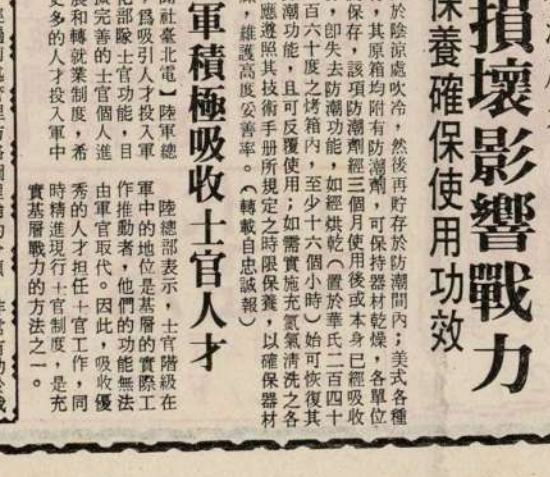 損壞影響戰力
保養確保使用功效
於陰涼處吹冷，然後再貯存於防潮間內；美式各種
，其原箱均附有防潮劑，可保持器材乾燥，各單位
保存，該項防潮劑經三個月使用後或本身已經吸收
，卽失去防潮功能，如經烘乾（置於華氏二百四十
百六十度之烤箱內，至少十六個小時）始可恢復其
潮功能，且可反覆使用；如需實施充氮氣清洗之各
應遵照其技術手册所規定之時限保養，以確保器材
，維護高度妥善率。（轉載自忠誠報）
軍積極吸收士官人才
社臺北電】陸軍總
爲吸引人才投入軍
部隊士官功能，目
完善的士官個人進
和轉就業制度，希
更多的人才投入軍中
陸總部表示，士官階級在
軍中的地位是基層的實際工
作推動者，他們的功能無法
由軍官取代。因此，吸收優
秀的人才担任士官工作，同
時精進現行士官制度，是充
實基層戰力的方法之一。